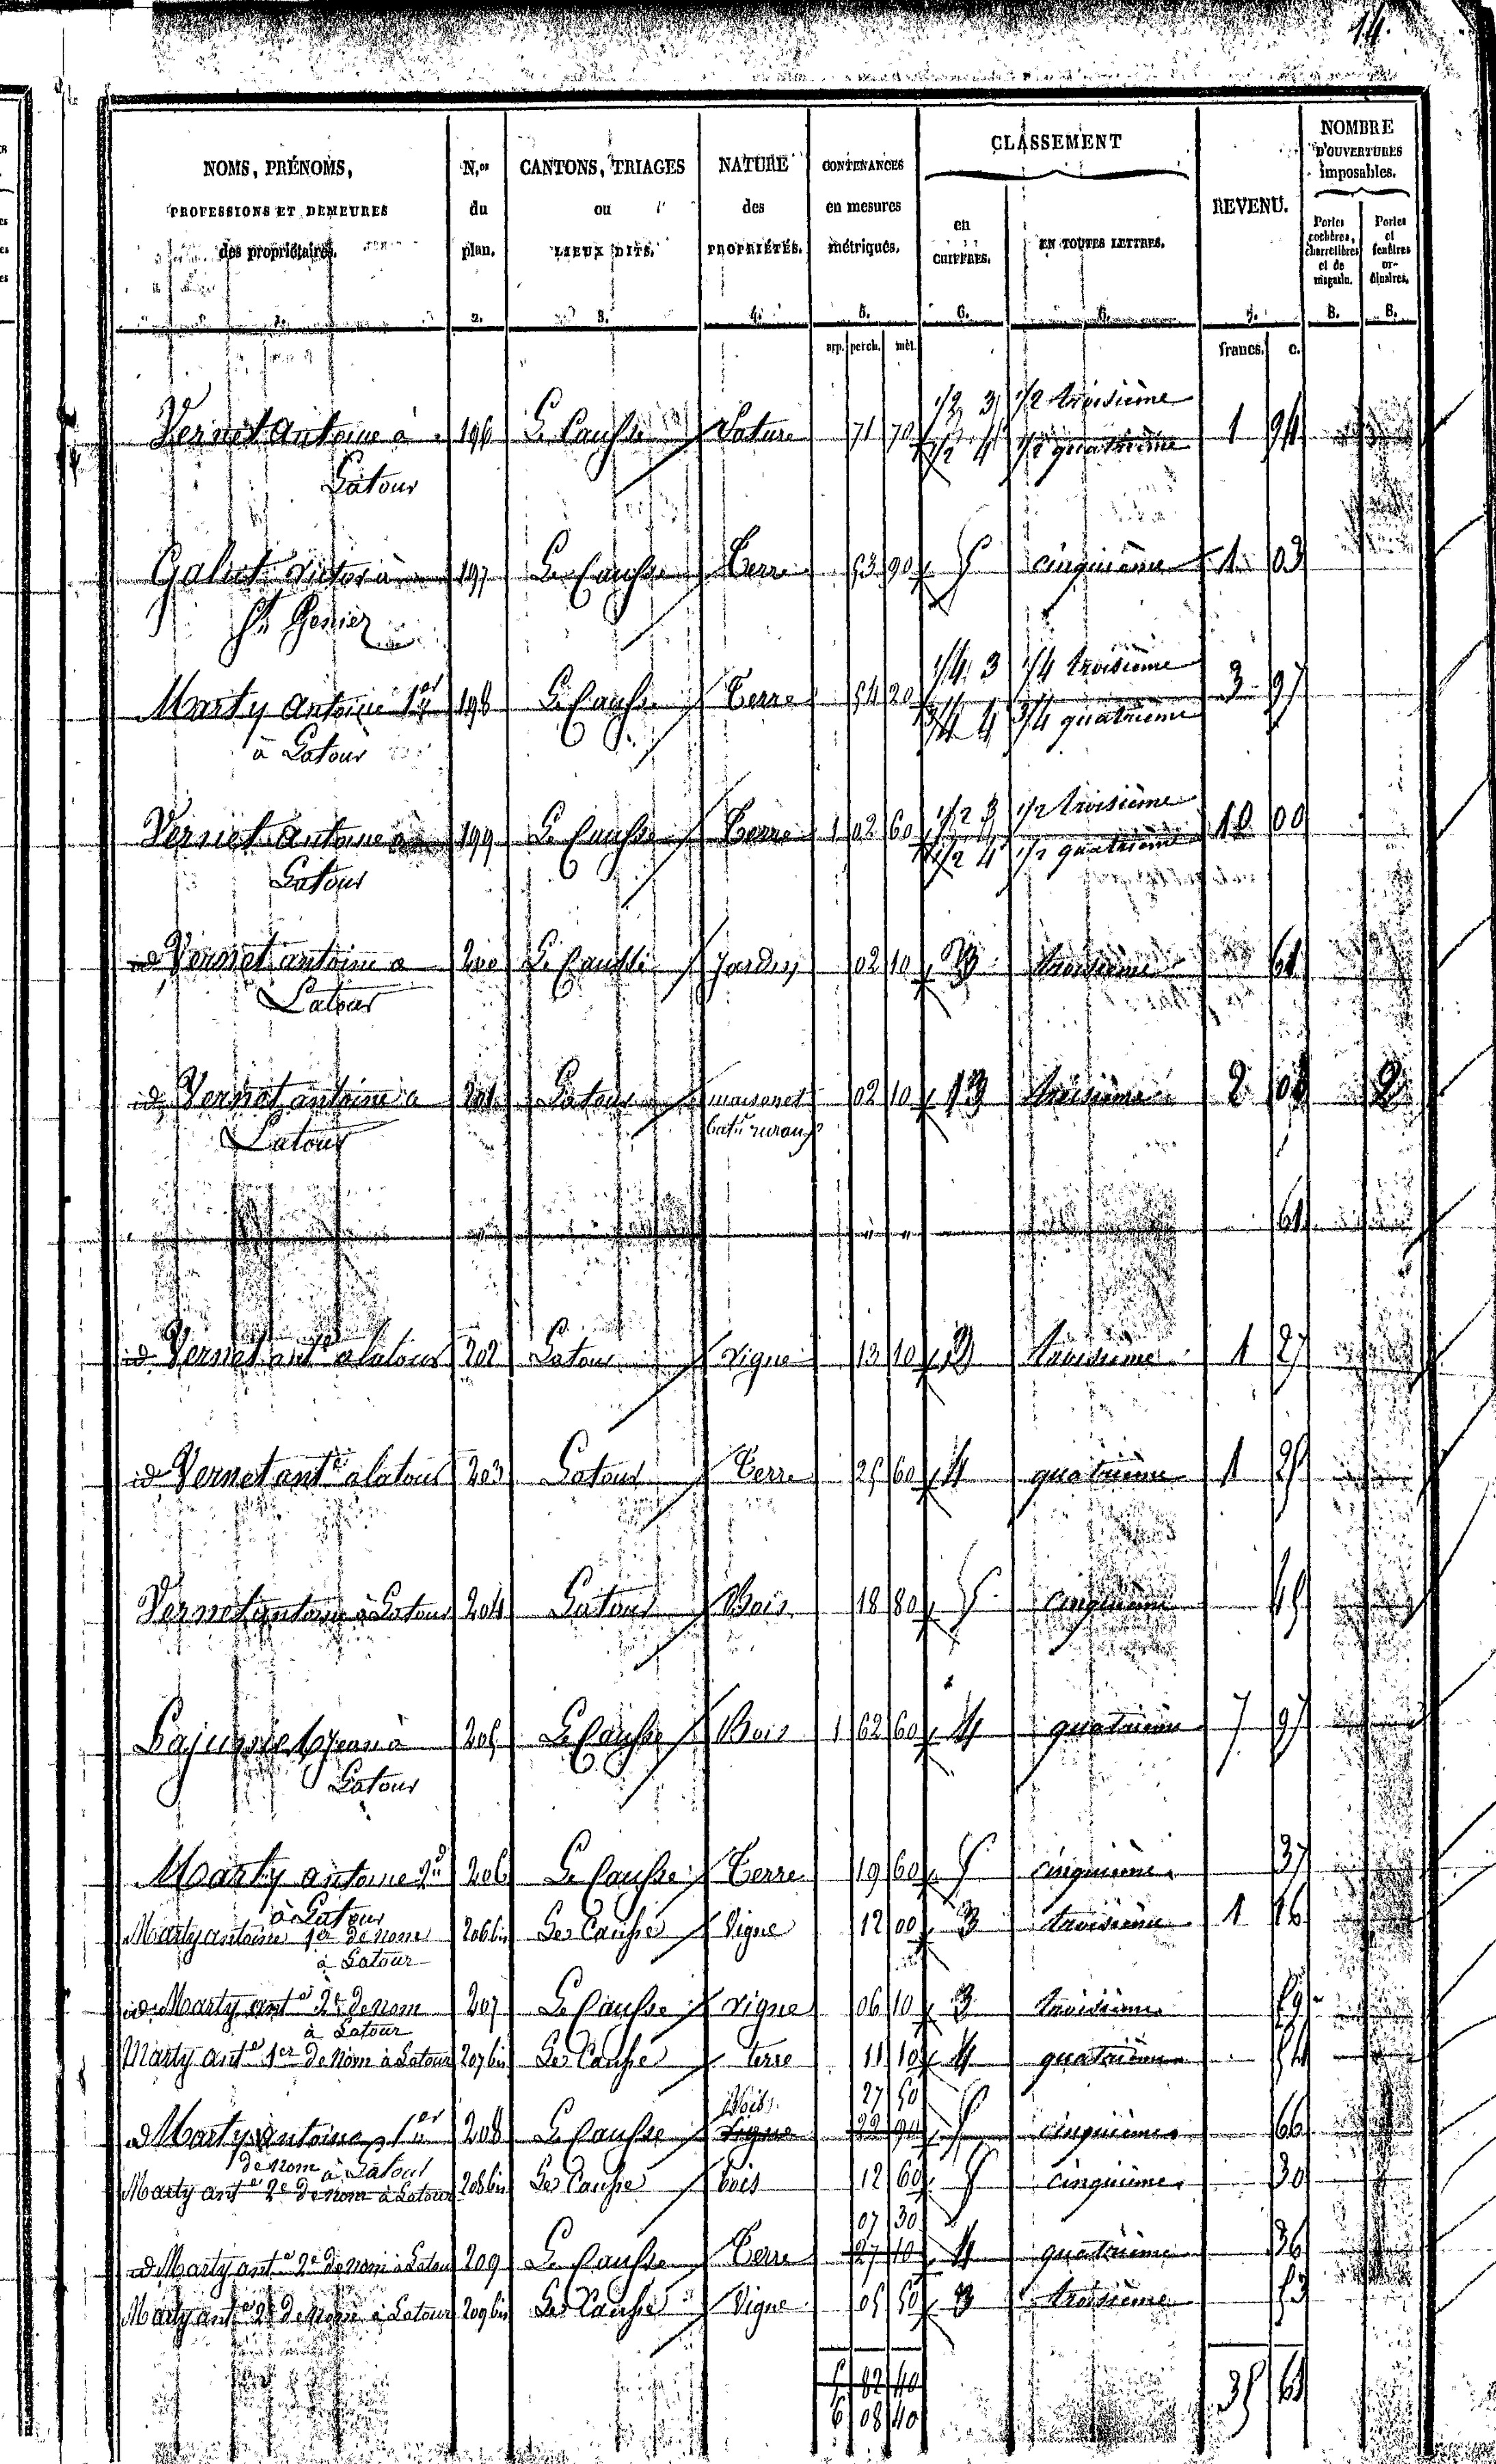 14.
NOMS, PRÉNOMS, PROFESSIONS ET DEMEURES des propriétaires. 1.
N.os du plan. 2.
CANTONS, TRIAGES ou LIEUX DITS. 3.
NATURE des PROPRIÉTÉS. 4.
CONTENANCES en mesures métriques. 5.
CLASSEMENT
en CHIFFRES. 6.
EN TOUTES LETTRES. 6.
REVENU. 7.
NOMBRE D'OUVERTURES imposables.
Portes cochères, charretières et de magasin. 8.
Portes et fenêtres ordinaires. 8.
arp. perch. mèt. francs. c.
Vernet Antoine à 196 Le Causse Pature 71 70 1/2 3 1/2 troisième 1 94
Latour 1/2 4 1/2 quatrième
Galut victor à 197 Le Causse Terre 53 90 5 cinquième 1 03
St Geniez
Marty Antoine 1er 198 Le Causse Terre 54 20 1/4 3 1/4 troisième 3 97
à Latour 3/4 4 3/4 quatrième
Vernet Antoine à 199 Le Causse Terre 1 02 60 1/2 3 1/2 troisième 10 00
Latour 1/2 4 1/2 quatrième
id Vernet antoine a 200 Le Causse Jardin 02 10 3 troisième 61
Latour
id Vernet antoine a 201 Latour maison et 02 10 3 troisième 2 2
Latour bat.ts ruraux
" " " 61
id Vernet ant.e a latour 202 Latour vigne 13 10 3 troisième 1 27
id Vernet ant.e a latour 203 Latour Terre 25 60 4 quatrième 1 25
Vernet antoine à Latour 204 Latour Bois 18 80 5 cinquième 45
Jean à 205 Le Causse Bois 1 62 60 4 quatrième 7 97
Latour
Marty antoine 2d 206 Le Causse Terre 19 60 5 cinquième 37
à Latour
Marty antoine 1er de nom 206 bis Le Causse Vigne 12 00 3 troisième 1 16
à Latour
id Marty ant.e 2e de nom 207 Le Causse vigne 06 10 3 troisième 59
à Latour
Marty ant.e 1er de nom à Latour 207 bis Le Causse terre 11 10 4 quatrième 54
Bois 27 50
id Marty Antoine 1er 208 Le Causse Vigne 22 90 5 cinquième 66
de nom à Latour
Marty ant.e 2e de nom à Latour 208 bis Le Causse bois 12 60 5 cinquième 30
07 30
id Marty ant.e 2e de nom à Latour 209 Le Causse Terre 27 10 4 quatrième 36
Marty ant.e 2e de nom à Latour 209 bis Le Causse Vigne 05 50 3 troisième 53
5 82 40
6 08 40 35 61